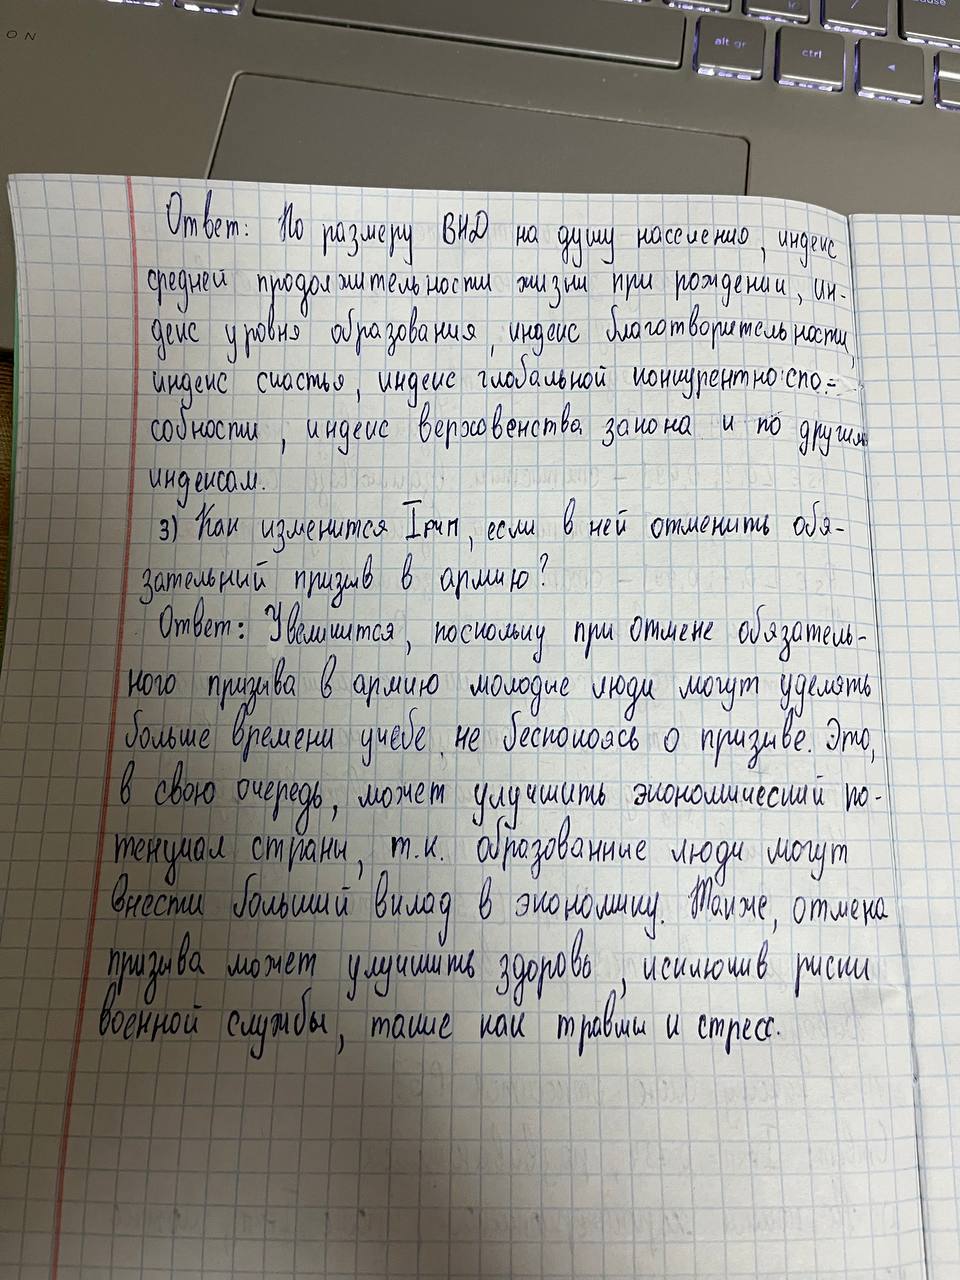 ON
alt gr
ctrl
Ответ: По размеру ВНД на душу населению, индекс
средней продолжительности жизни при рождении, ин-
декс уровня образования, индекс благотворительности,
индекс счастья, индекс глобальной конкурентно спо-
собности, индекс верховенства закона и по другим
индексам.
3) Как изменится Iрчп, если в ней отменить обя-
зательный призыв в армию?
Ответ: Увеличится, поскольку при отмене обязатель-
ного призыва в армию молодые люди могут уделять
больше времени учебе, не беспокоясь о призыве. Это,
в свою очередь, может улучшить экономический по-
тенциал страны, т.к. образованные люди могут
внести больший вклад в экономику. Также, отмена
призыва может улучшить здоровь, исключив риски
военной службы, такие как травмы и стресс.